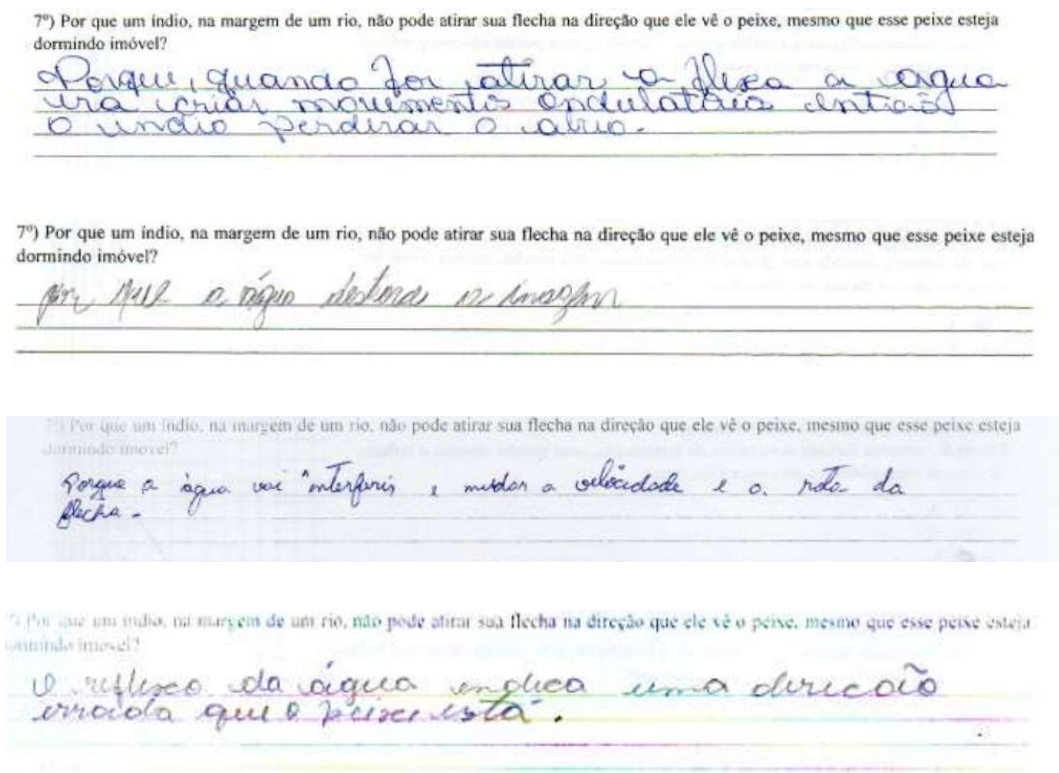 7º) Por que um índio, na margem de um rio, não pode atirar sua flecha na direção que ele vê o peixe, mesmo que esse peixe esteja
dormindo imóvel?
Porque, quando for atirar a flexa a agua
ira criar movimentos ondulatórios então
o indio perderar o alvo.
7º) Por que um índio, na margem de um rio, não pode atirar sua flecha na direção que ele vê o peixe, mesmo que esse peixe esteja
dormindo imóvel?
por que a água destorce a imagem
7º) Por que um índio, na margem de um rio, não pode atirar sua flecha na direção que ele vê o peixe, mesmo que esse peixe esteja
dormindo imóvel?
Porque a água vai interferir, e mudar a velocidade e a rota da
flecha.
Por que um índio, na margem de um rio, não pode atirar sua flecha na direção que ele vê o peixe, mesmo que esse peixe esteja
dormindo imóvel?
O reflexo da água indica uma direcão
errada que o peixe está.